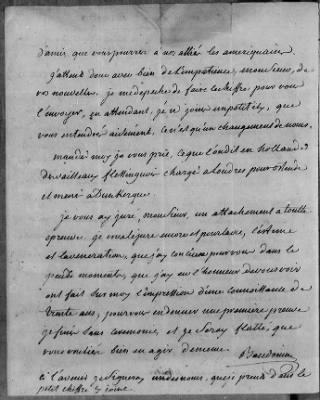 d'amis que vous pourrez a nos alliés les ameriquains.
j'attens donc avec bien de l'impatience, monsieur, de
vos nouvelles. je me depeche de faire le chiffre, pour vous
l'envoyer, en attendant, je n'y joins petit, que
vous entendrez aisement, ce n'est qu'un changement de noms.
mandés moy je vous prie, ce que l'on dit en hollande
des vaisseaux chargé a Londres pour ostende
et mené a Dunkerque.
je vous ay juré, monsieur, un attachement a toutte
epreuve, je vous le jure encore et pour la vie, l'estime
et la veneration, que j'ay concue pour vous dans le
peu de moments, que j'ay eu l'honneur de vous voir
ont fait sur moy l'impression d'une connoissance de
trente ans, pour vous en donner une premiere preuve
je finis sans ceremonie, et je seray flatté, que
vous vouliés bien en agir de meme.
a l'avenir je signeray un des noms, que je prens dans le
petit chiffre cy joint.